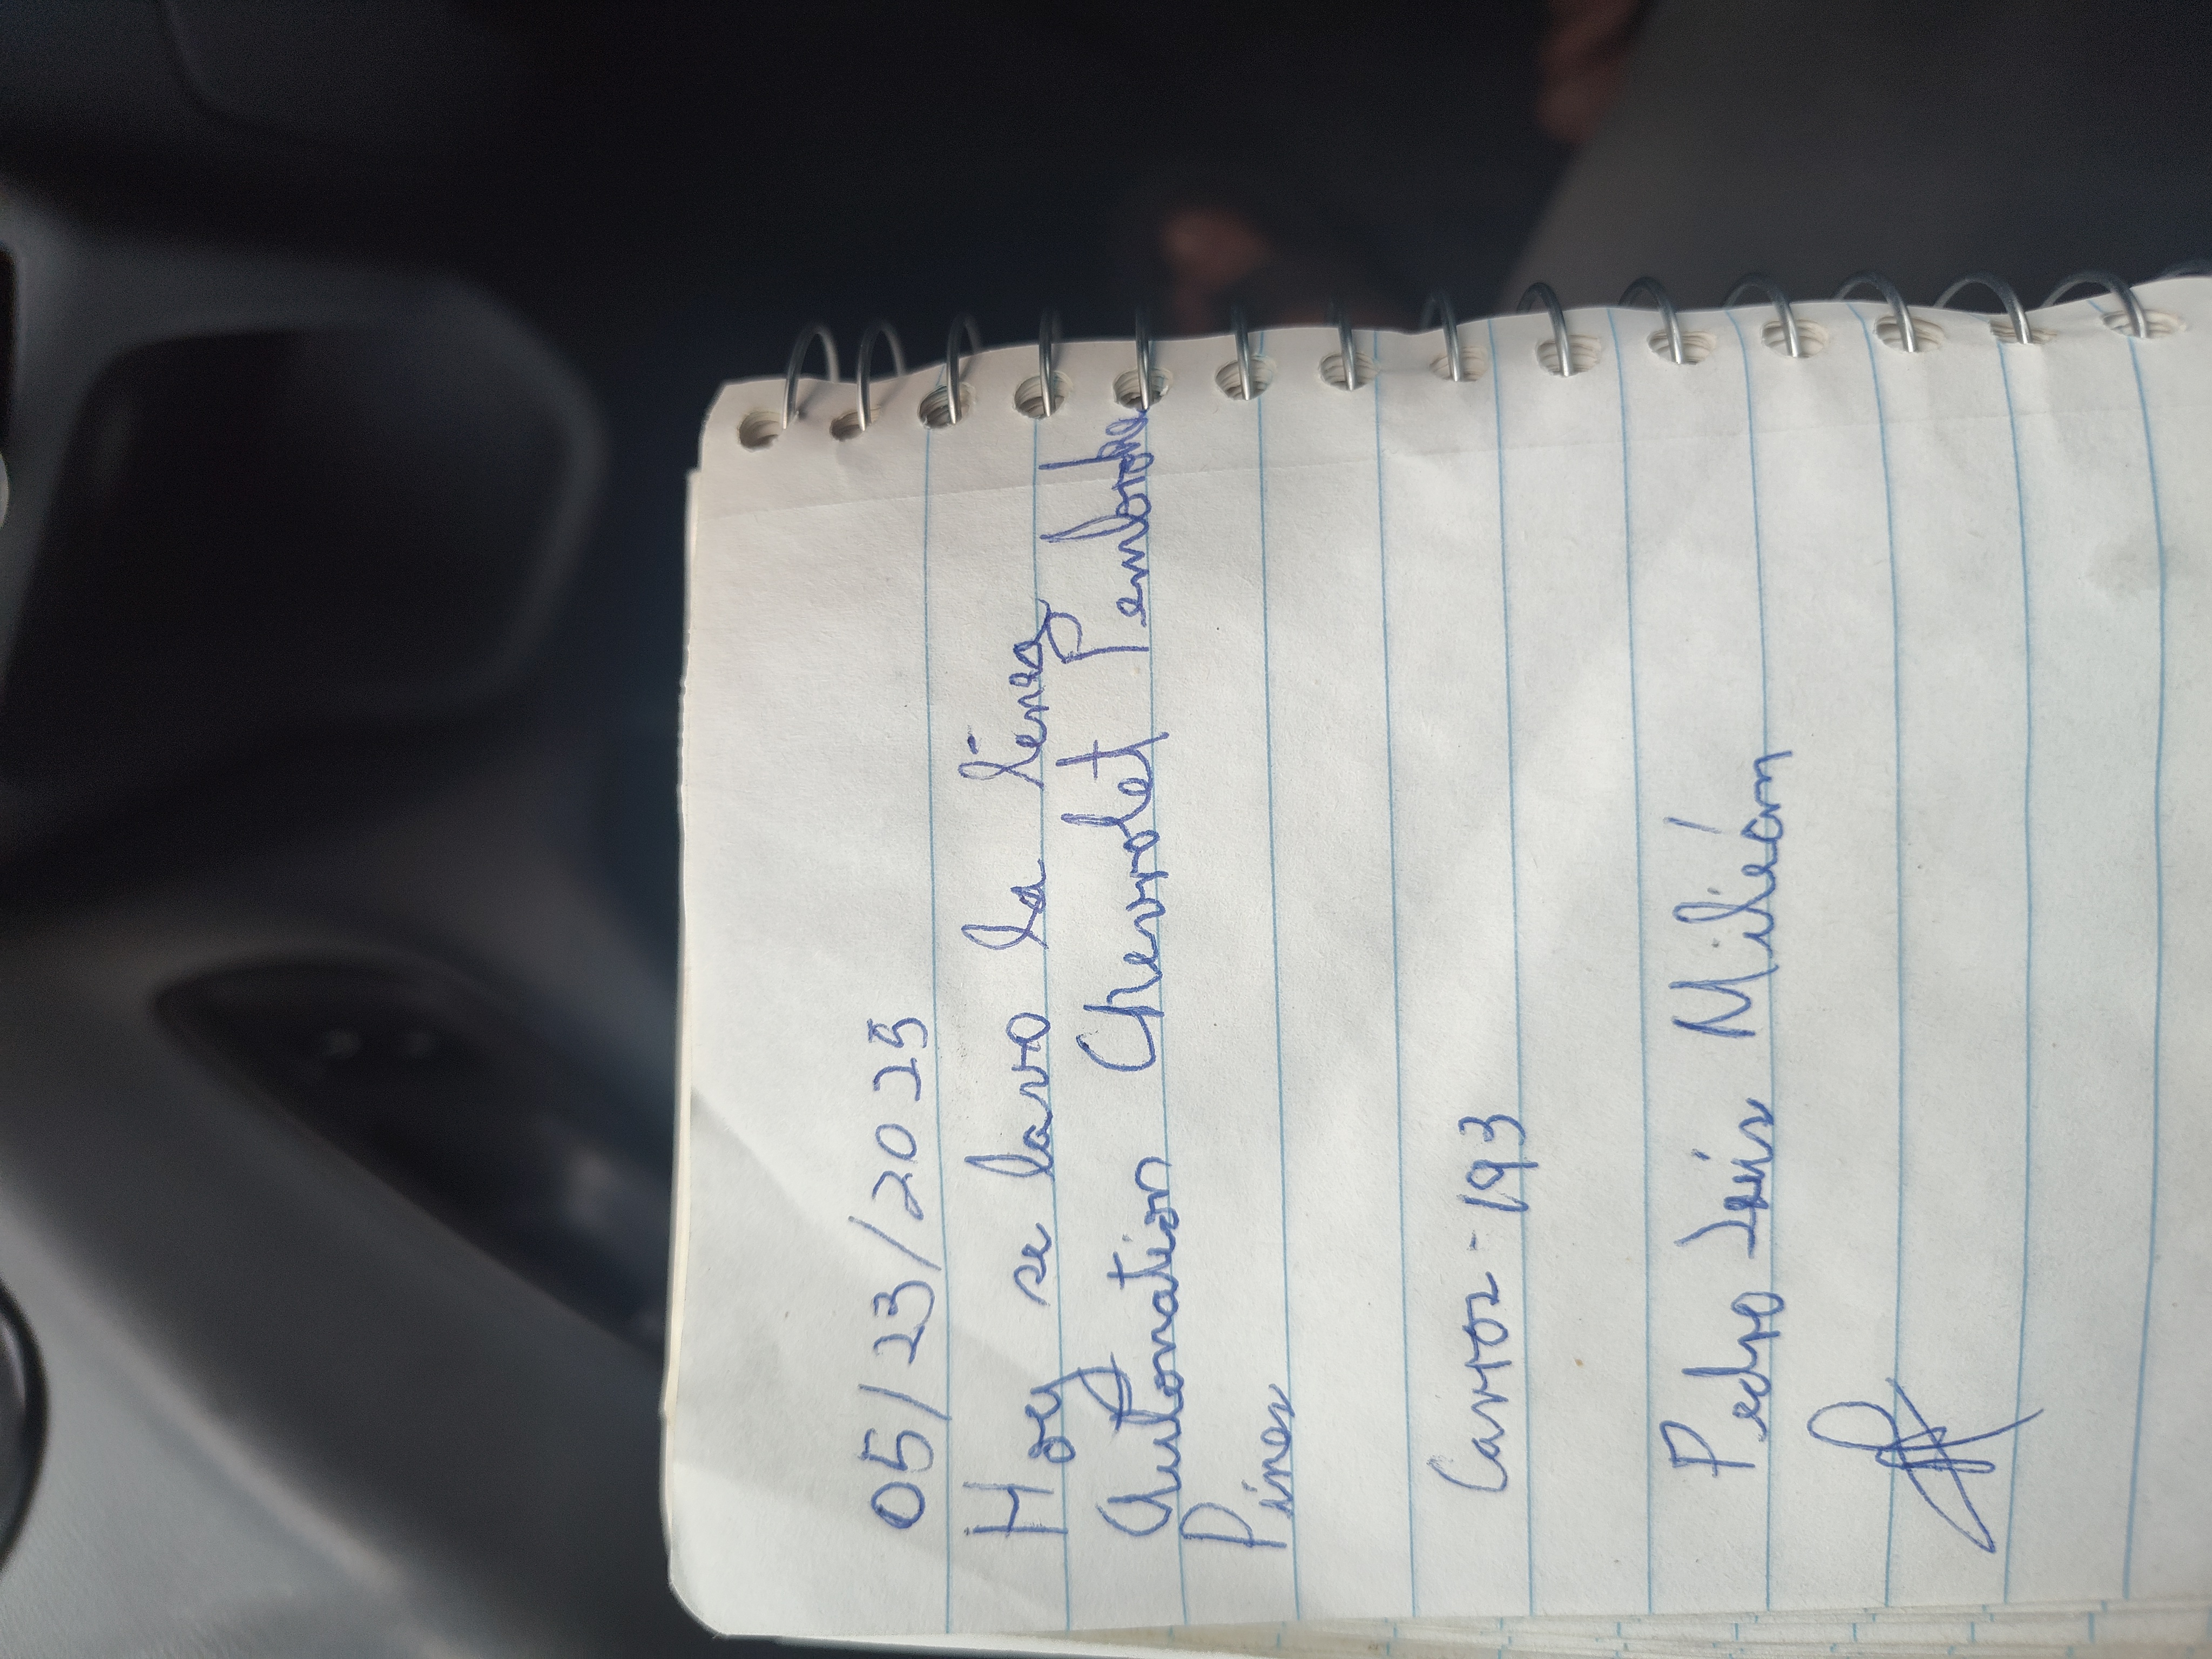 05/23/2025
Hoy se lavo la línea
Autonation Chevrolet Pembroke
Pines
Carros - 193
Pedro Luis Milián